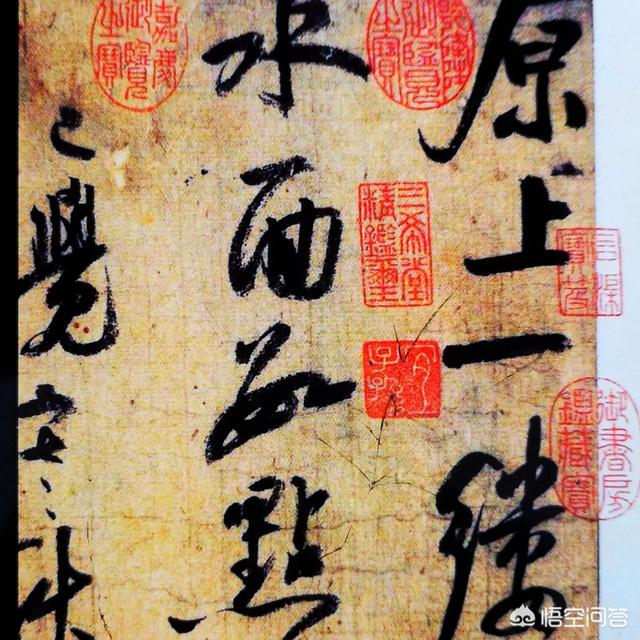 原上一縷
水面數點
已覺寒秋
嘉慶御覽之寶
三希堂精鑑璽
宜子孫
石渠寶笈
御書房鑑藏寶
悟空问答